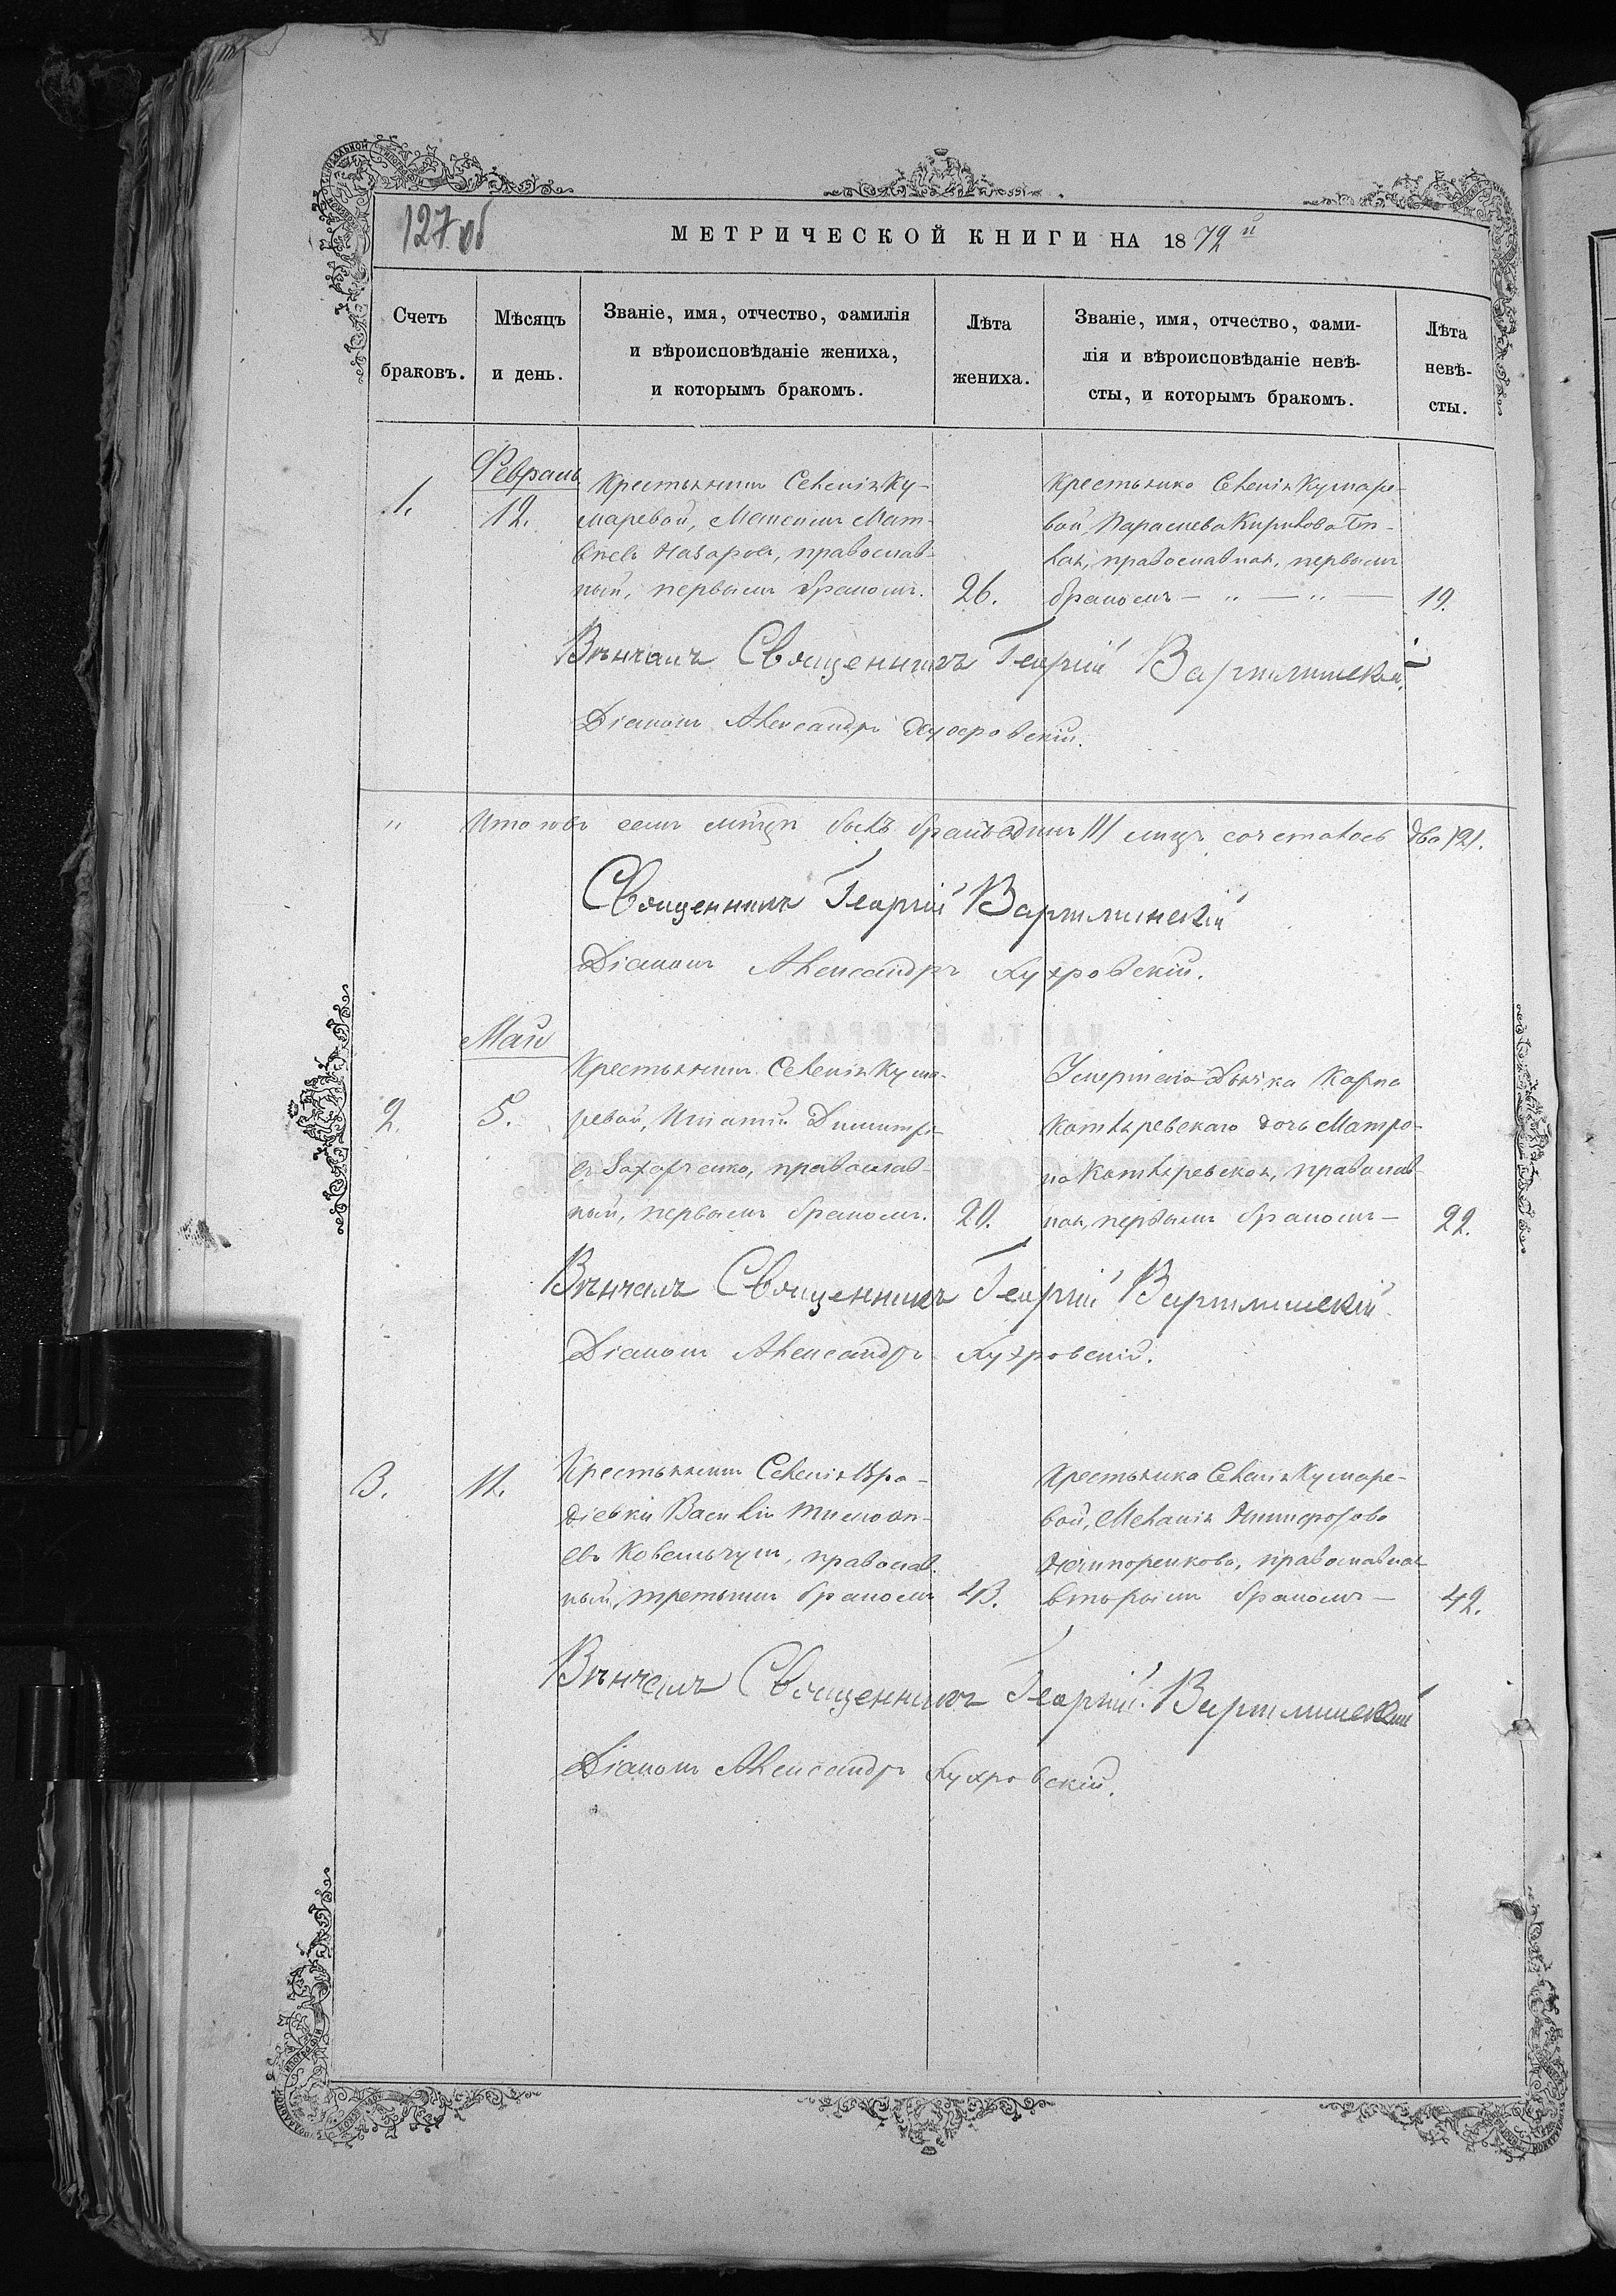 127 об
МЕТРИЧЕСКОЙ КНИГИ НА 1872й
Счетъ
браковъ.
Мѣсяцъ
и день.
Званіе, имя, отчество, фамилія
и вѣроисповѣданіе жениха,
и которымъ бракомъ.
Лѣта
жениха.
Званіе, имя, отчество, фами-
лія и вѣроисповѣданіе невѣ-
сты, и которымъ бракомъ.
Лѣта
невѣ-
сты.
1.
Февраль
12.
Крестьянинъ Селенія Ку-
маревой, Мат-
Назаровъ, православ-
ный, первымъ бракомъ.
26.
Крестьянка Селенія Кумаре-
вой, Параскева Кирилова
православная, первымъ
бракомъ — " — " —
19.
Вѣнчалъ Священникъ Георгій
Діаконъ Александръ
" Итого въ семъ мѣсяцѣ былъ бракъ одинъ /1/ лицъ сочеталось два /2/.
Священникъ Георгій
Діаконъ Александръ
Май
2.
5.
Крестьянинъ Селенія Кума-
ревой, Игнатій Димитрі-
евъ Захарченко, православ-
ный, первымъ бракомъ.
20.
Умершаго Дьячка Карпа
Котляревскаго дочь Матро-
на Котляревская, православ-
ная, первымъ бракомъ —
22.
Вѣнчалъ Священникъ Георгій
Діаконъ Александръ
3.
11.
Крестьянинъ Селенія
Василій Тимоѳе-
евъ православ-
ный, третьимъ бракомъ
43.
Крестьянка Селенія Кумаре-
вой, Меланія Никифорова
Нечипоренкова, православная
вторымъ бракомъ —
42.
Вѣнчалъ Священникъ Георгій
Діаконъ Александръ